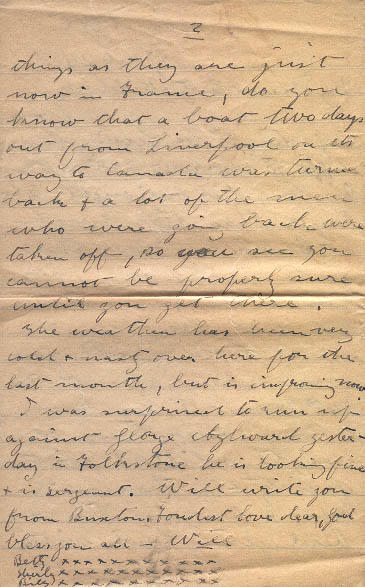 2
things as they are just
now in France, do you
know that a boat two days
out from Liverpool on its
way to Canada was turned
back & a lot of the men
who were going back were
taken off, so you see you
cannot be properly sure
until you get there.
The weather has been very
cold & nasty over here for the
last month, but is improving now
I was surprised to run up
against George Aylward yester-
day in Folkstone he is looking fine
& is sergeant. Will write you
from Buxton. Fondest love dear, God
bless you all - Will
Betty x x x x x x x x x x
Shirley x x x x x x x x x x
x x x x x x x x x x